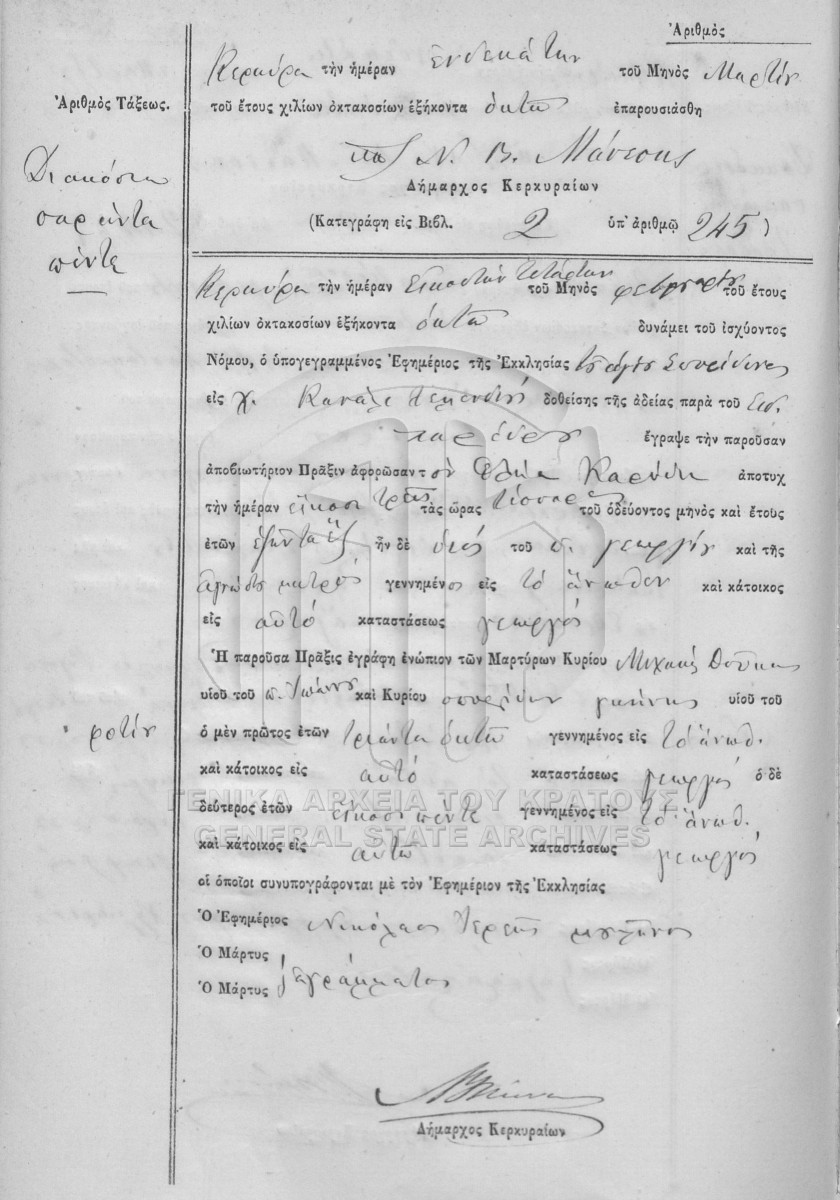 Ἀριθμὸς
Κερκύρᾳ τὴν ἡμέραν ἑνδεκάτην τοῦ Μηνὸς Μαρτίου
Ἀριθμὸς Τάξεως.
τοῦ ἔτους χιλίων ὀκτακοσίων ἑξήκοντα ὀκτὼ ἐπαρουσιάσθη
Ν. Β. Μάνεσης
Δήμαρχος Κερκυραίων
Διακόσια
σαράντα
πέντε
(Κατεγράφη εἰς Βιβλ. 2 ὑπ' ἀριθμῷ 245)
Κερκύρᾳ τὴν ἡμέραν εἰκοστὴν τετάρτην τοῦ Μηνὸς φεβρουαρίου τοῦ ἔτους
χιλίων ὀκτακοσίων ἑξήκοντα ὀκτὼ δυνάμει τοῦ ἰσχύοντος
Νόμου, ὁ ὑπογεγραμμένος Ἐφημέριος τῆς Ἐκκλησίας τοῦ ἁγίου Σπυρίδωνος
εἰς χ. δοθείσης τῆς ἀδείας παρὰ τοῦ Εἰδ.
παρέδρου ἔγραψε τὴν παροῦσαν
ἀποβιωτήριον Πρᾶξιν ἀφορῶσαν τὸν ἀποτυχ
τὴν ἡμέραν εἴκοσι τρεῖς τὰς ὥρας τέσσαρες τοῦ ὁδεύοντος μηνὸς καὶ ἔτους
ἐτῶν ἑξῆντα ἕξ ἦν δὲ υἱός τοῦ π. γεωργίου καὶ τῆς
ἀγνώστου μητρός γεννημένος εἰς τὸ ἄνωθεν καὶ κάτοικος
εἰς αὐτό καταστάσεως γεωργός
Ἡ παροῦσα Πρᾶξις ἐγράφη ἐνώπιον τῶν Μαρτύρων Κυρίου Μιχαὴλ
υἱοῦ τοῦ π. Ἰωάννου καὶ Κυρίου σπυρίδων υἱοῦ τοῦ
ὁ μὲν πρῶτος ἐτῶν τριάντα ὀκτὼ γεννημένος εἰς τὸ ἄνωθ.
καὶ κάτοικος εἰς αὐτό καταστάσεως γεωργός ὁ δὲ
δεύτερος ἐτῶν εἴκοσι πέντε γεννημένος εἰς τὸ ἄνωθ.
καὶ κάτοικος εἰς αὐτὼ καταστάσεως γεωργός
οἱ ὁποῖοι συνυπογράφονται μὲ τὸν Ἐφημέριον τῆς Ἐκκλησίας
Ὁ Ἐφημέριος Νικόλαος Ἱερεὺς
Ὁ Μάρτυς
Ὁ Μάρτυς ἀγράμματος
Δήμαρχος Κερκυραίων
ΓΕΝΙΚΑ ΑΡΧΕΙΑ ΤΟΥ ΚΡΑΤΟΥΣ
GENERAL STATE ARCHIVES